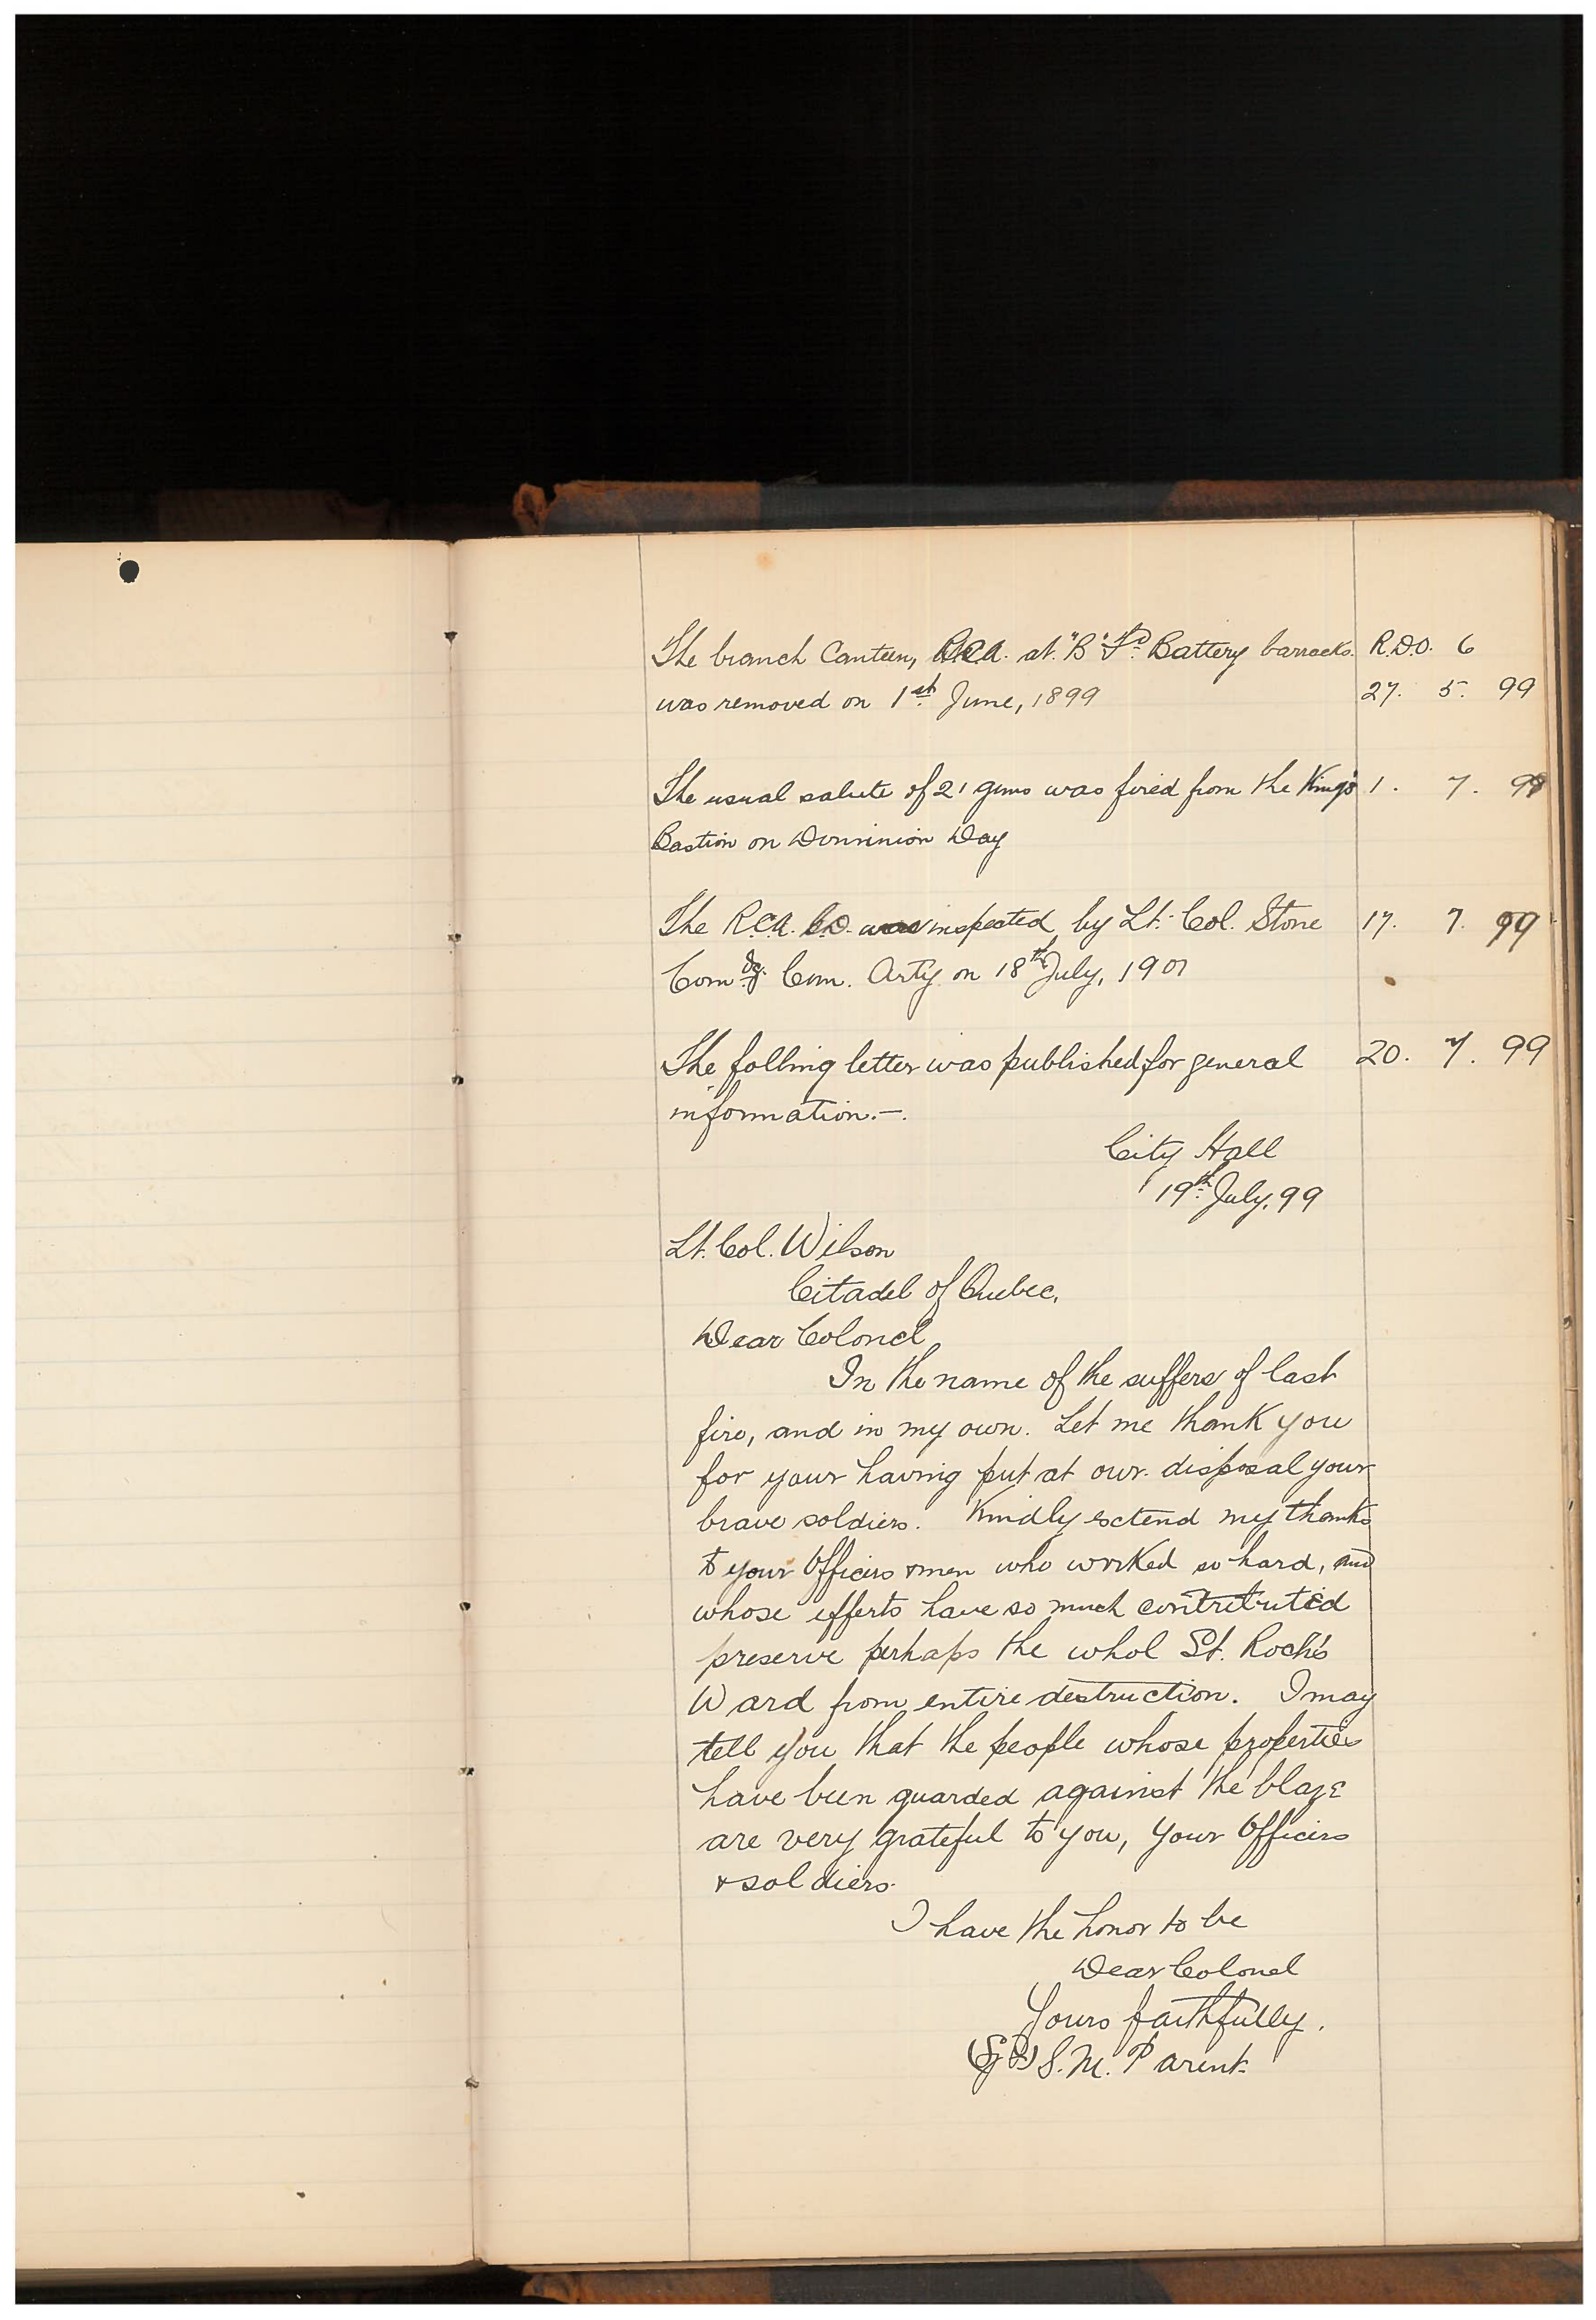 The branch Canteen, R.C.A. at "B" Fd. Battery barracks. R.D.O. 6
was removed on 1st June, 1899 27. 5. 99
The usual salute of 21 guns was fired from the King's 1. 7. 99
Bastion on Dominion Day
The R.C.A. was inspected by Lt. Col. Stone 17. 7. 99
Comdg. Com. Arty on 18th July, 1901
The follwing letter was published for general 20. 7. 99
information.—.
City Hall
19th July, 99
Lt. Col. Wilson
Citadel of Quebec.
Dear Colonel
In the name of the suffers of last
fire, and in my own. Let me thank you
for your having put at our disposal your
brave soldiers. Kindly extend my thanks
to your Officers & men who worked so hard, and
whose efforts have so much contributed
preserve perhaps the whol St. Roch's
Ward from entire destruction. I may
tell you that the people whose properties
have been guarded against the blaze
are very grateful to you, your Officers
& soldiers.
I have the honor to be
Dear Colonel
Yours faithfully.
(Sgd) S. M. Parent.